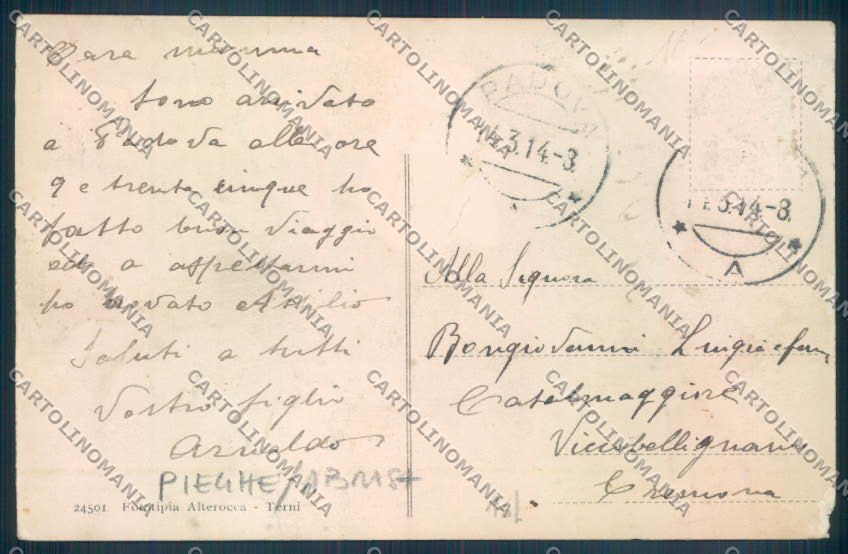 Cara mamma
sono arivato
a Padova alle ore
9 e trenta cinque ho
fatto buon viaggio
ed a aspettarmi
ho trovato Attilio
Saluti a tutti
Vostro figlio
Arnaldo
PIEGHE/ABRAS+
24501 Fototipia Alterocca - Terni
PADOVA
11.3.14-8
11.3.14-8
A
Alla Signora
Bongiovanni Luigia e fam
Casalmaggiore
Vicobellignano
Cremona
CARTOLINOMANIA